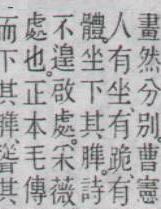 畫然分別。曹憲
人有坐、有跪、有
體。坐下其脽。詩
不遑啟處。采薇
處也。正本毛傳
而下其脽、聳其